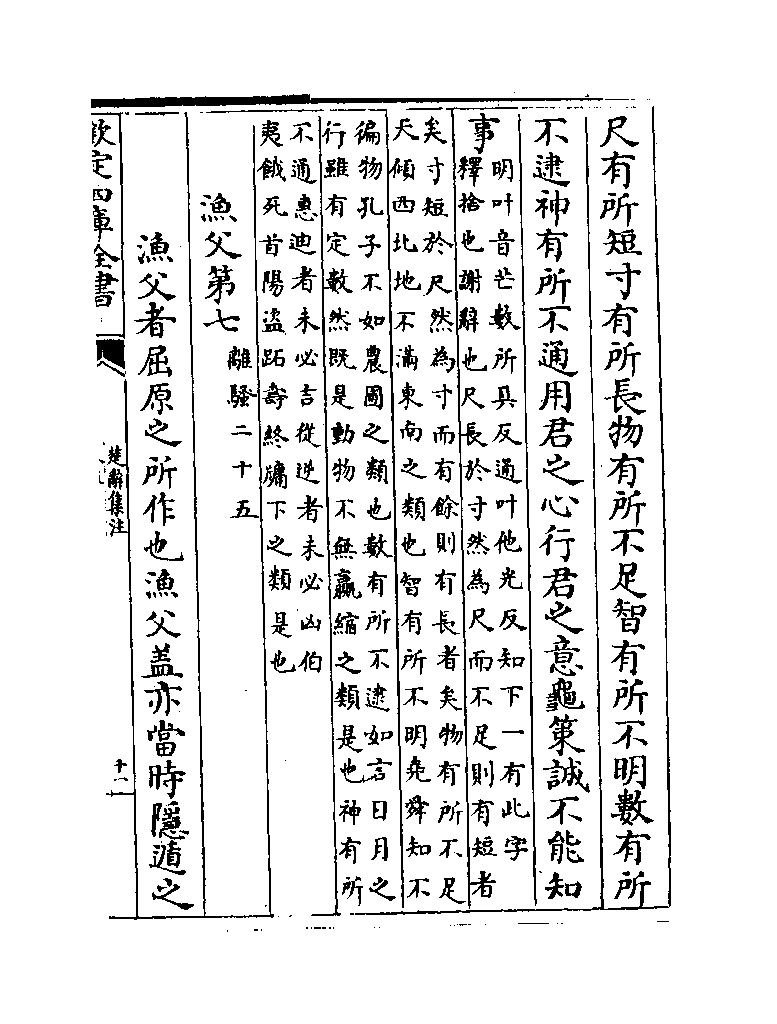 尺有所短寸有所長物有所不足智有所不明數有所
不逮神有所不通用君之心行君之意龜策誠不能知
事
明叶音芒數所具反通叶他光反知下一有此字
釋捨也謝辭也尺長於寸然為尺而不足則有短者
矣寸短於尺然為寸而有餘則有長者矣物有所不足
天傾西北地不滿東南之類也智有所不明堯舜知不
徧物孔子不如農圃之類也數有所不逮如言日月之
行雖有定數然既是動物不無贏縮之類是也神有所
不通惠迪者未必吉從逆者未必凶伯
夷餓死首陽盜跖壽終牖下之類是也
漁父第七
離騷二十五
漁父者屈原之所作也漁父蓋亦當時隱遁之
欽定四庫全書
楚辭集注
十一